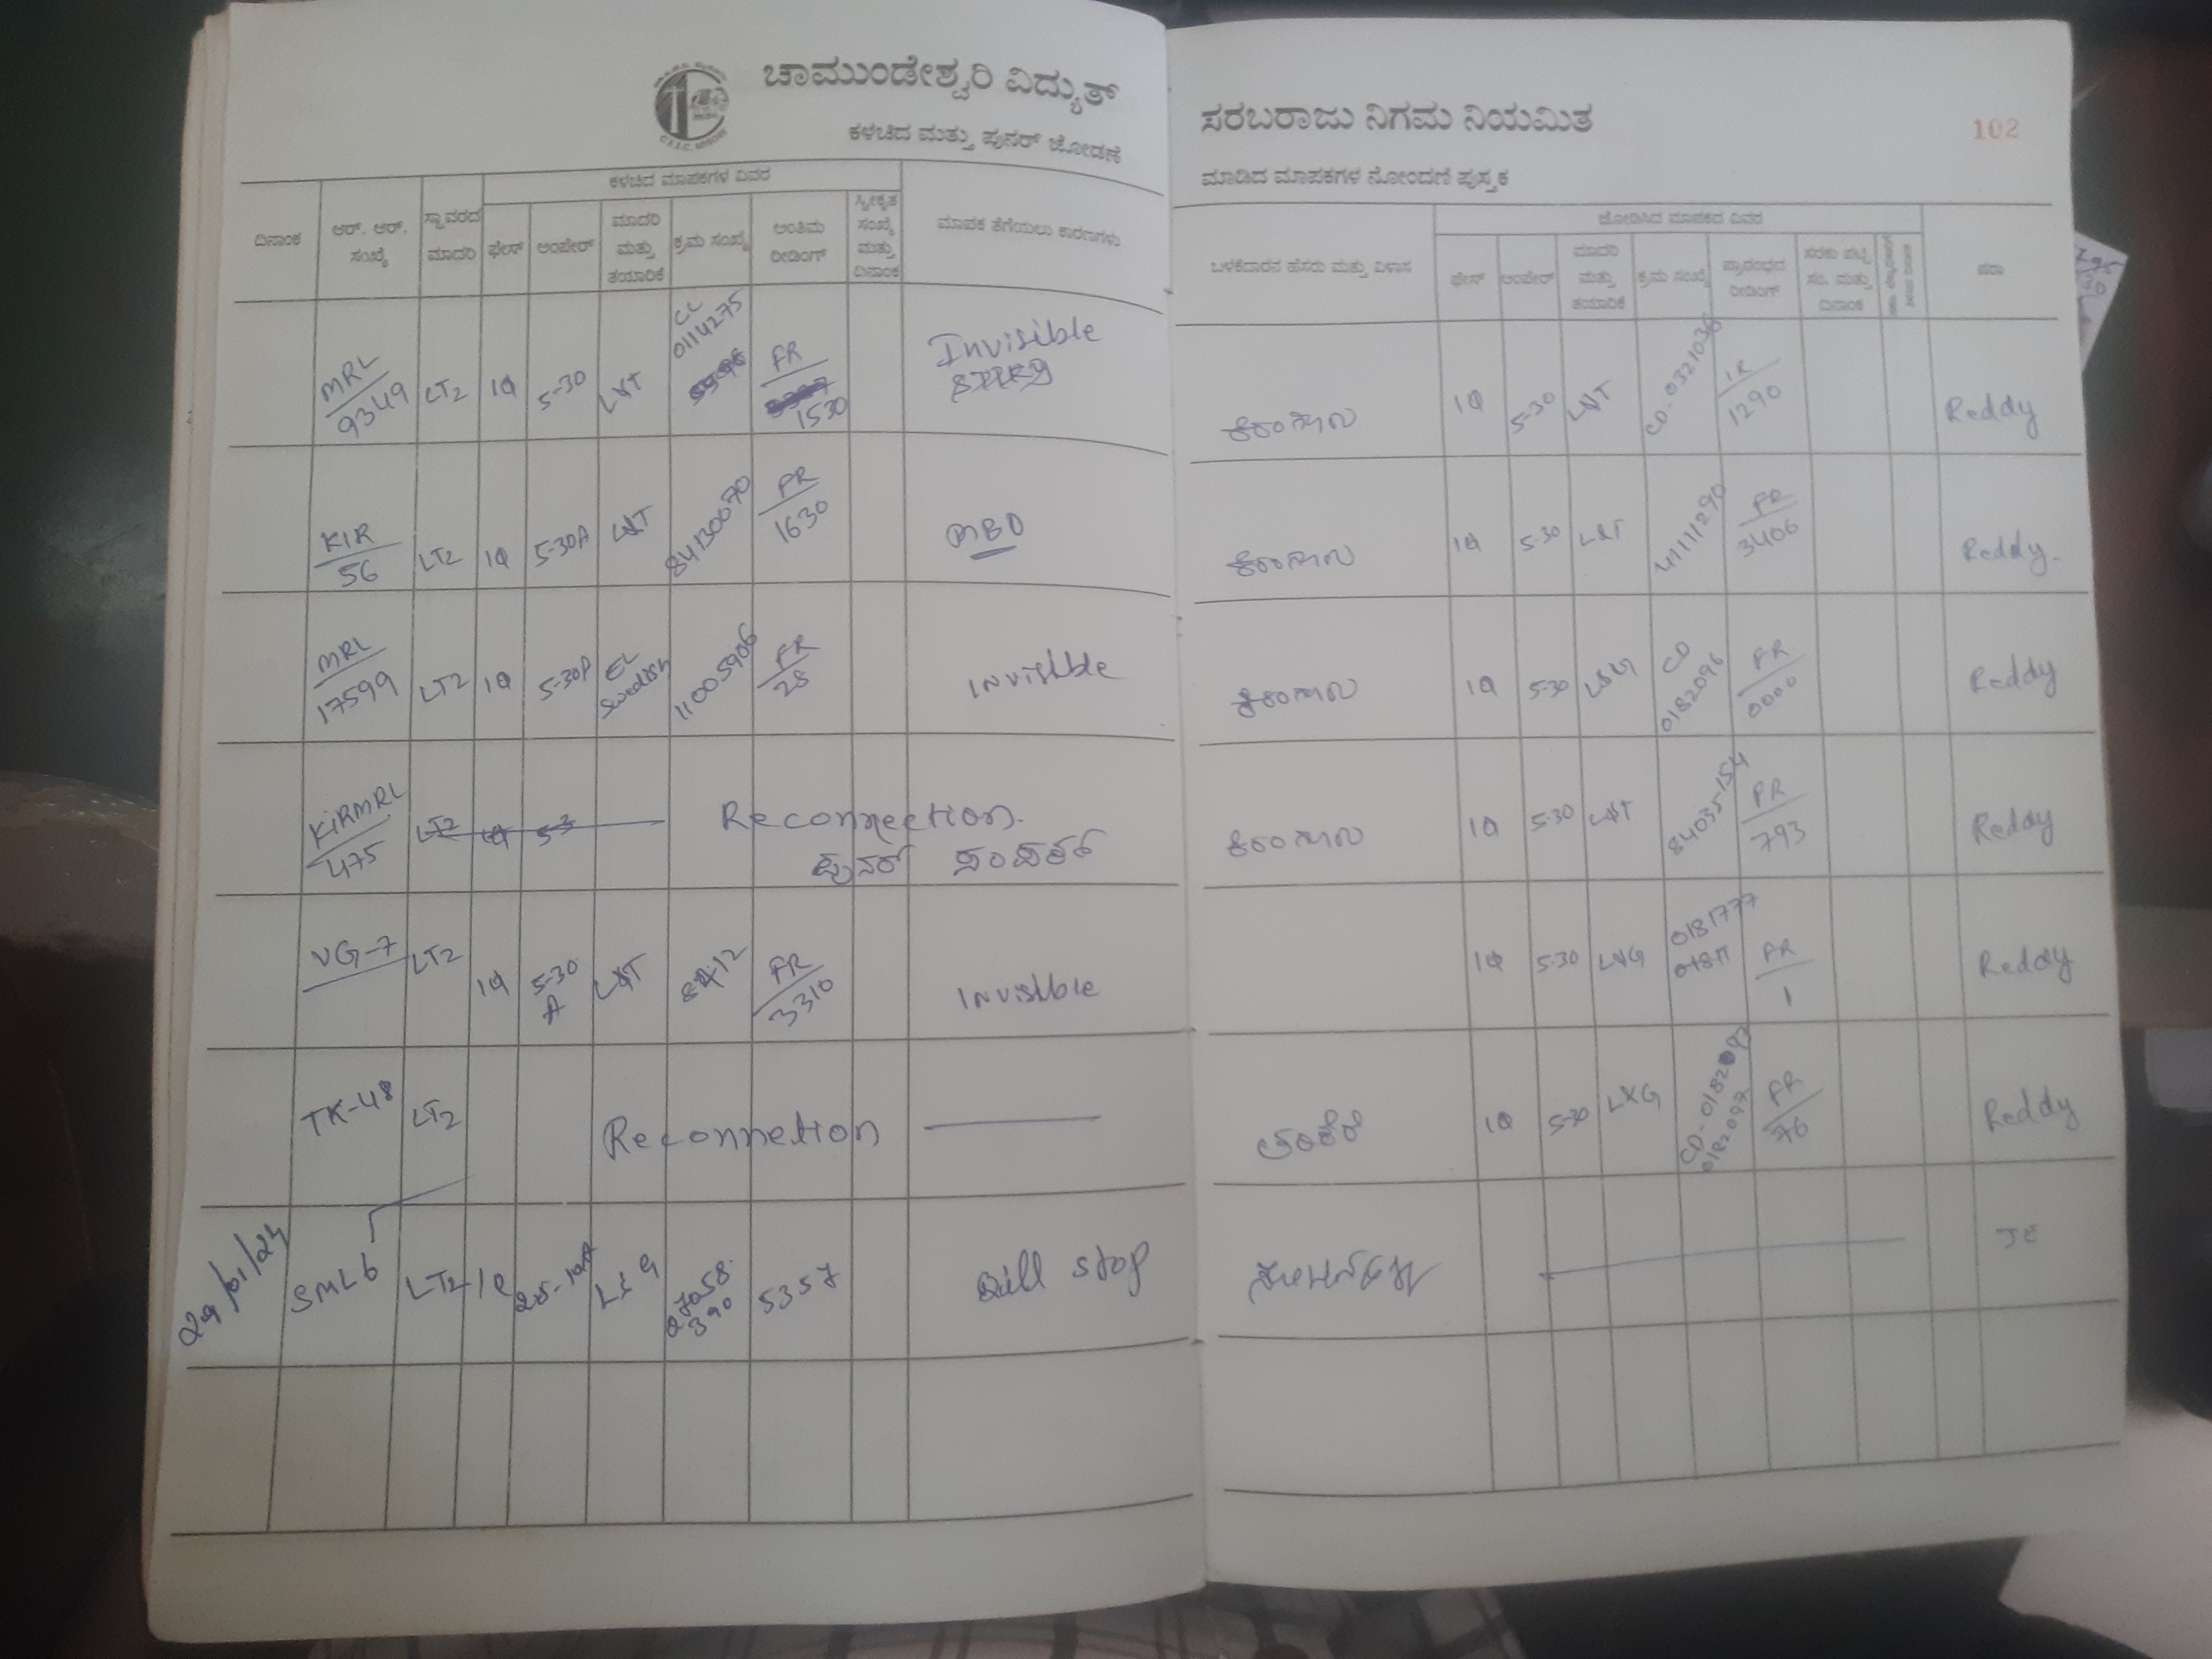 ಚಾಮುಂಡೇಶ್ವರಿ ವಿದ್ಯುತ್
ಕಳಚಿದ ಮತ್ತು ಪುನರ್ ಜೋಡಣೆ
ದಿನಾಂಕ
ಆರ್. ಆರ್. ಸಂಖ್ಯೆ
ಸ್ಥಾವರದ ಮಾದರಿ
ಕಳಚಿದ ಮಾಪಕಗಳ ವಿವರ
ಫೇಸ್
ಅಂಪೇರ್
ಮಾದರಿ ಮತ್ತು ತಯಾರಿಕೆ
ಕ್ರಮ ಸಂಖ್ಯೆ
ಅಂತಿಮ ರೀಡಿಂಗ್
ಸ್ವೀಕೃತ ಸಂಖ್ಯೆ ಮತ್ತು ದಿನಾಂಕ
ಮಾಪಕ ತೆಗೆಯಲು ಕಾರಣಗಳು
MRL/9349 LT2 1Φ 5-30 L&T CL 0114275 FR 1530 Invisible
KIR/56 LT2 1Φ 5-30A L&T 84130070 FR/1630 MBO
MRL/17599 LT2 1Φ 5-30A EL 11005906 FR/28 Invisible
KIRMRL/475 LT2 1Φ 5-3 Reconnection.
ಪುನರ್ ಸಂಪರ್ಕ
VG-7 LT2 1Φ 5-30 A L&T FR/3310 Invisible
TK-48 LT2 Reconnetion
29/01/24 SML6 LT2 L&G 27058390 5357 Bill stop
ಸರಬರಾಜು ನಿಗಮ ನಿಯಮಿತ
102
ಮಾಡಿದ ಮಾಪಕಗಳ ನೋಂದಣಿ ಪುಸ್ತಕ
ಬಳಕೆದಾರನ ಹೆಸರು ಮತ್ತು ವಿಳಾಸ
ಜೋಡಿಸಿದ ಮಾಪಕದ ವಿವರ
ಫೇಸ್
ಅಂಪೇರ್
ಮಾದರಿ ಮತ್ತು ತಯಾರಿಕೆ
ಕ್ರಮ ಸಂಖ್ಯೆ
ಪ್ರಾರಂಭದ ರೀಡಿಂಗ್
ಸರಕು ಪಟ್ಟಿ ಸಂ. ಮತ್ತು ದಿನಾಂಕ
ಷರಾ
1Φ 5-30 L&T CD-0321036 IR/1290 Reddy
1Φ 5-30 L&T 41111290 FR/3406 Reddy.
1Φ 5-30 L&G CD 0182096 FR/0000 Reddy
1Φ 5-30 L&T 84035154 FR/793 Reddy
1Φ 5-30 L&G 0181777 FR/1 Reddy
1Φ 5-30 L&G CD-0182097 0182097 FR/76 Reddy
JE